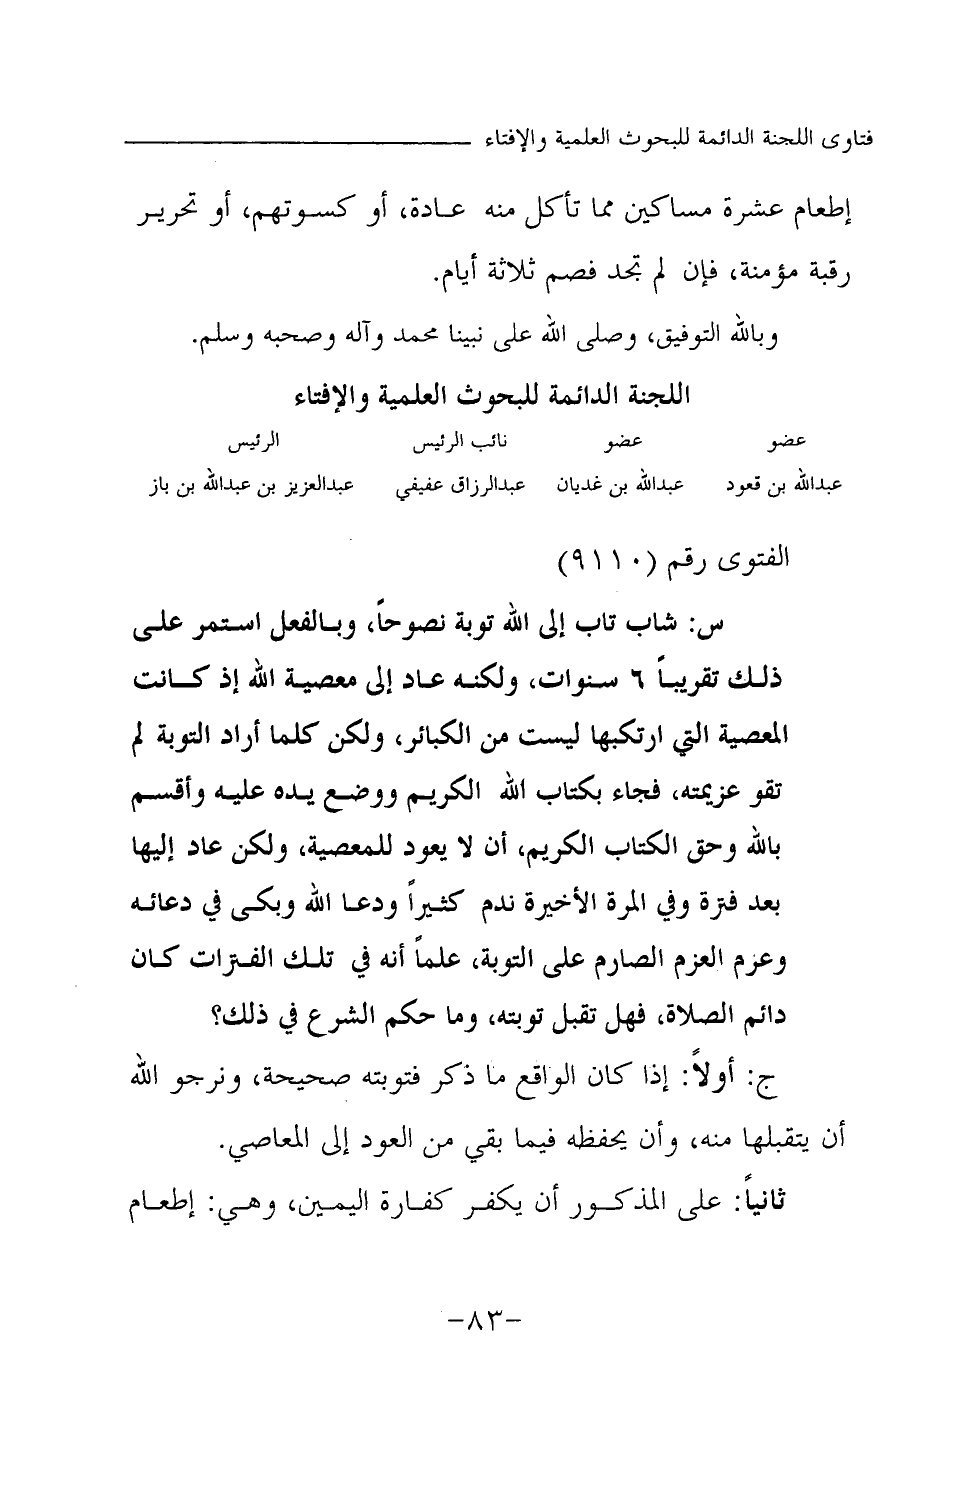 فتاوى اللجنة الدائمة للبحوث العلمية والإفتاء
إطعام عشرة مساكين مما تأكل منه عادة، أو كسوتهم، أو تحرير
رقبة مؤمنة، فإن لم تجد فصم ثلاثة أيام.
وبالله التوفيق، وصلى الله على نبينا محمد وآله وصحبه وسلم.
اللجنة الدائمة للبحوث العلمية والإفتاء
عضو عضو نائب الرئيس الرئيس
عبدالله بن قعود عبدالله بن غديان عبدالرزاق عفيفي عبدالعزيز بن عبدالله بن باز
الفتوى رقم (٩١١٠)
س: شاب تاب إلى الله توبة نصوحاً، وبالفعل استمر على
ذلك تقريباً ٦ سنوات، ولكنه عاد إلى معصية الله إذ كانت
المعصية التي ارتكبها ليست من الكبائر، ولكن كلما أراد التوبة لم
تقو عزيمته، فجاء بكتاب الله الكريم ووضع يده عليه وأقسم
بالله وحق الكتاب الكريم، أن لا يعود للمعصية، ولكن عاد إليها
بعد فترة وفي المرة الأخيرة ندم كثيراً ودعا الله وبكى في دعائه
وعزم العزم الصارم على التوبة، علماً أنه في تلك الفترات كان
دائم الصلاة، فهل تقبل توبته، وما حكم الشرع في ذلك؟
ج: أولاً: إذا كان الواقع ما ذكر فتوبته صحيحة، ونرجو الله
أن يتقبلها منه، وأن يحفظه فيما بقي من العود إلى المعاصي.
ثانياً: على المذكور أن يكفر كفارة اليمين، وهي: إطعام
-٨٣-